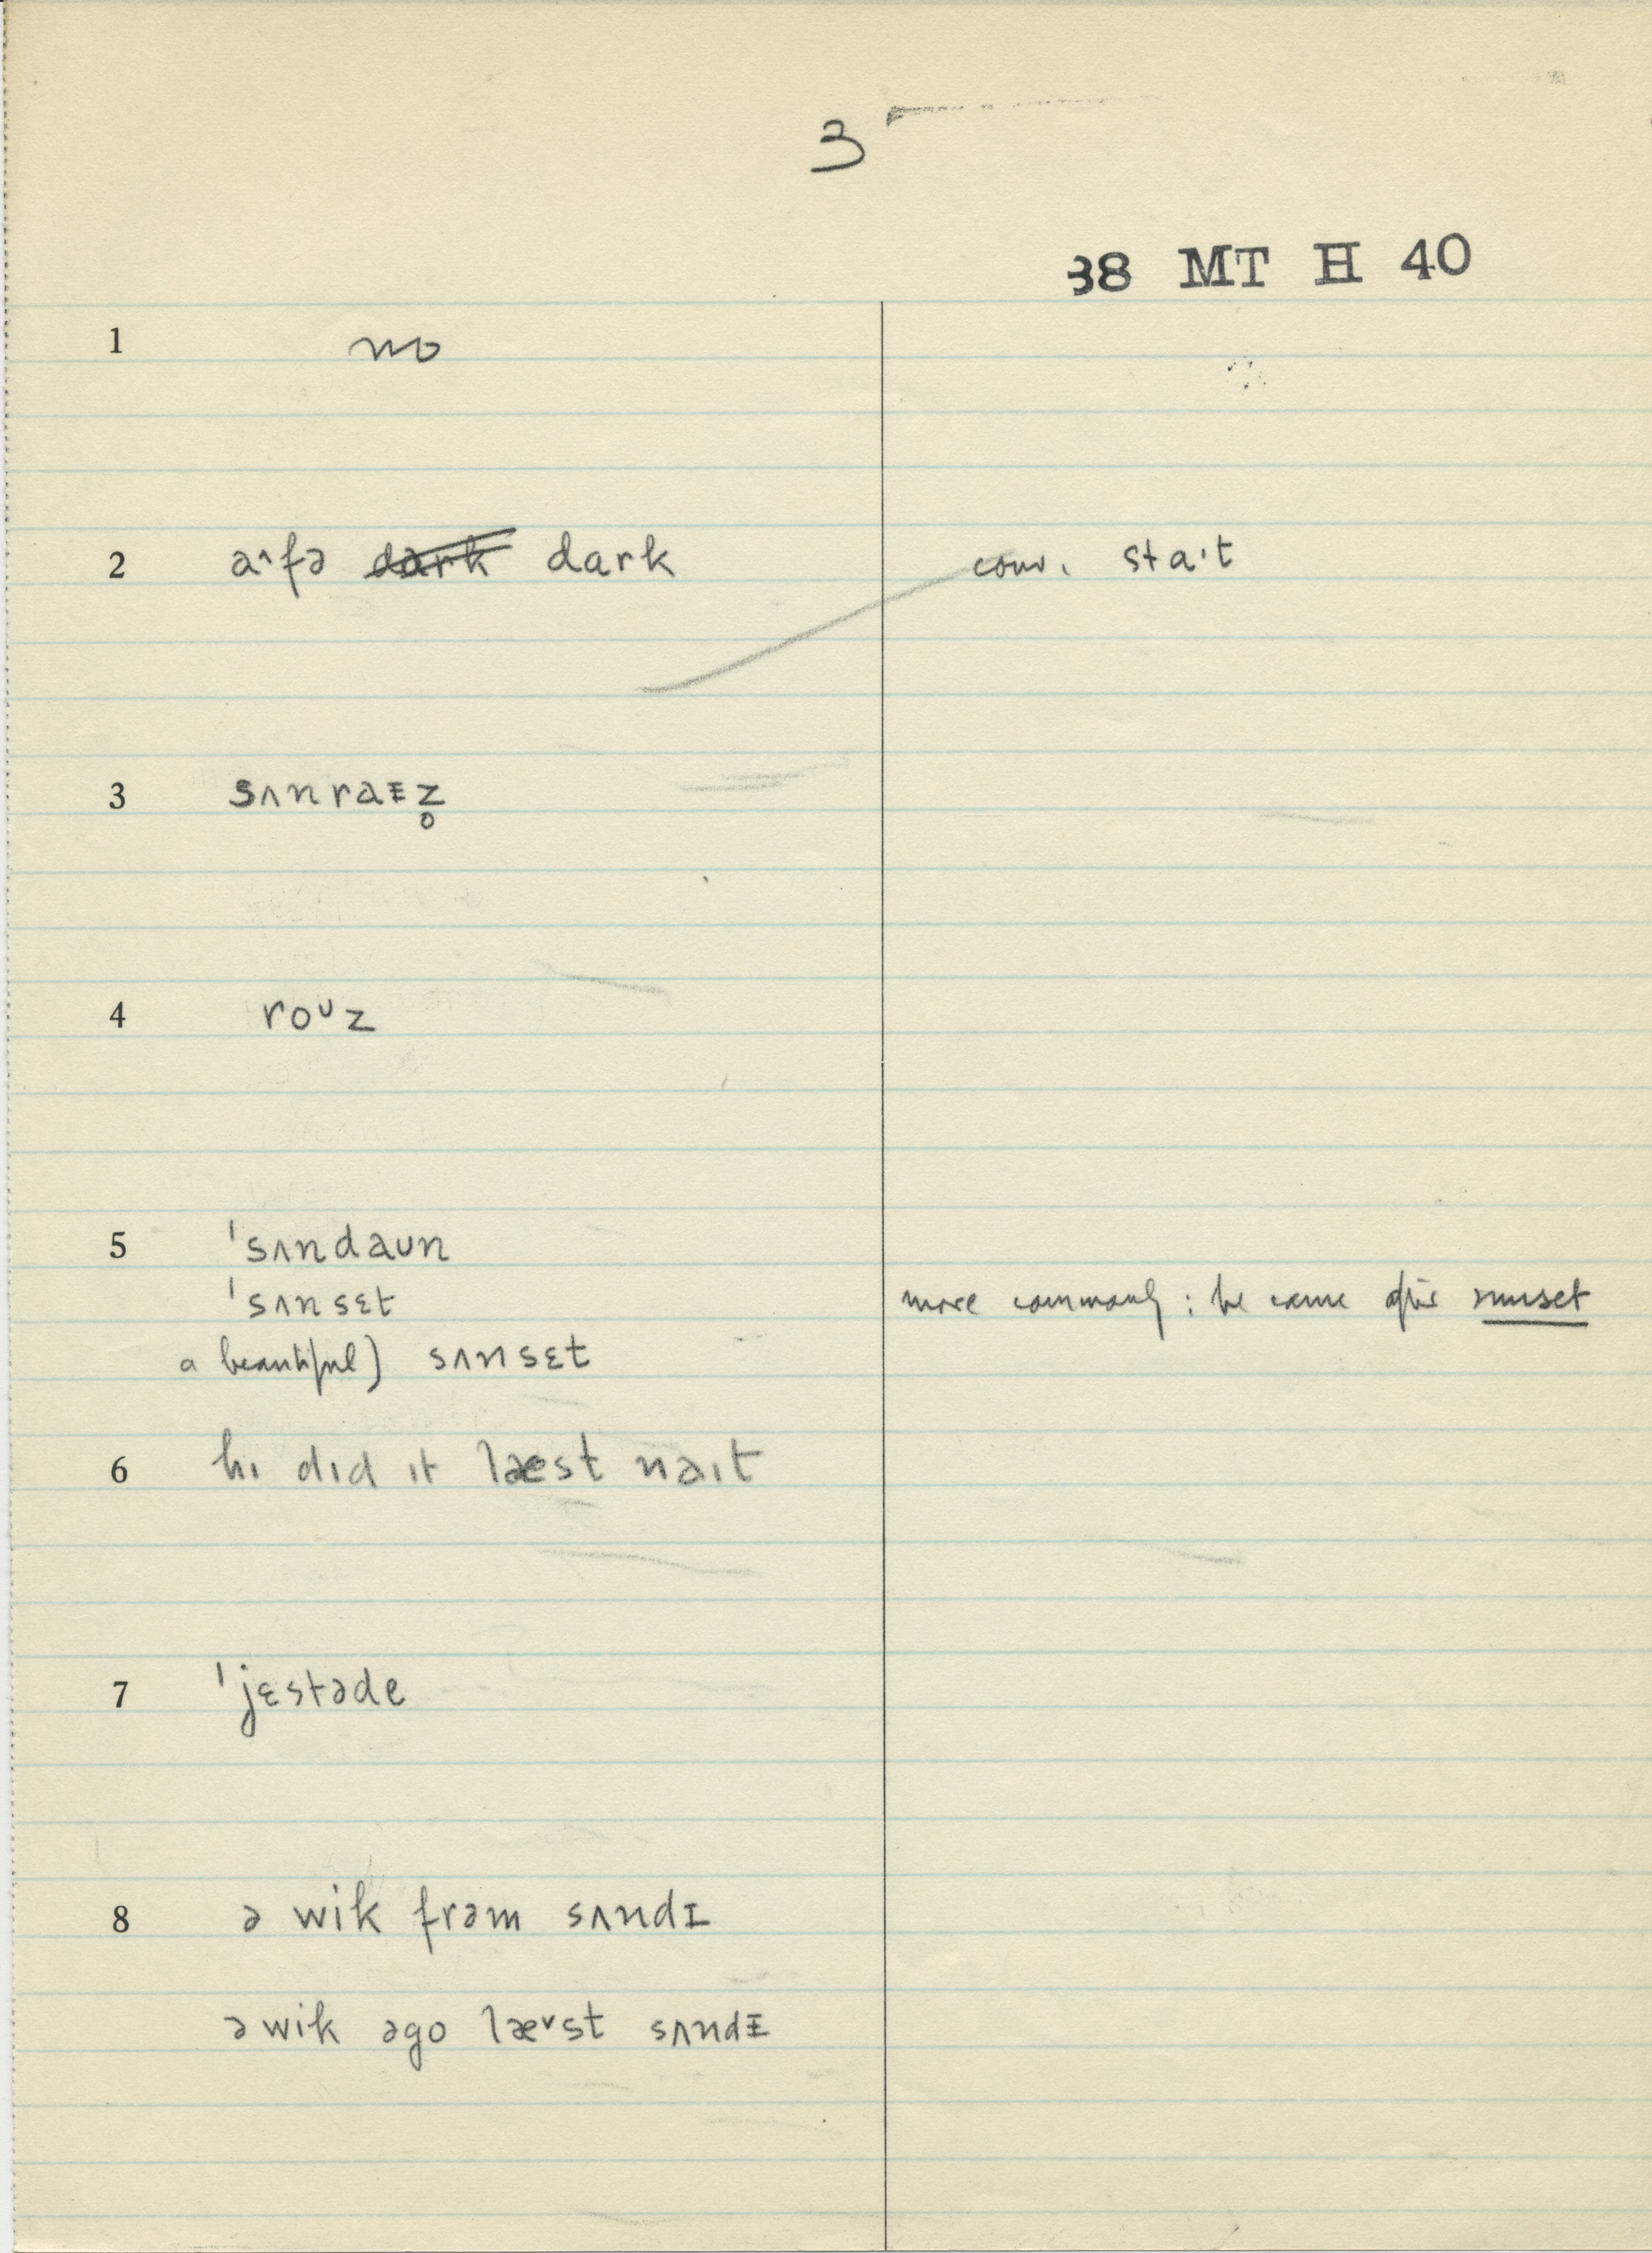 3
38 MT H 40
1 no
2 a˄fə dark dark conv. sta·t
3 sʌnraᵻz̥
4 roᴜz
5 ˈsʌndaʊn
ˈsʌnsɛt more commonly: he came after sunset
a beautiful) sʌnsɛt
6 hɪ dɪd ɪt læst naɪt
7 ˈjɛstəde
8 ə wik frəm sʌndɪ
ə wik əgo læ˅st sʌndᵻ